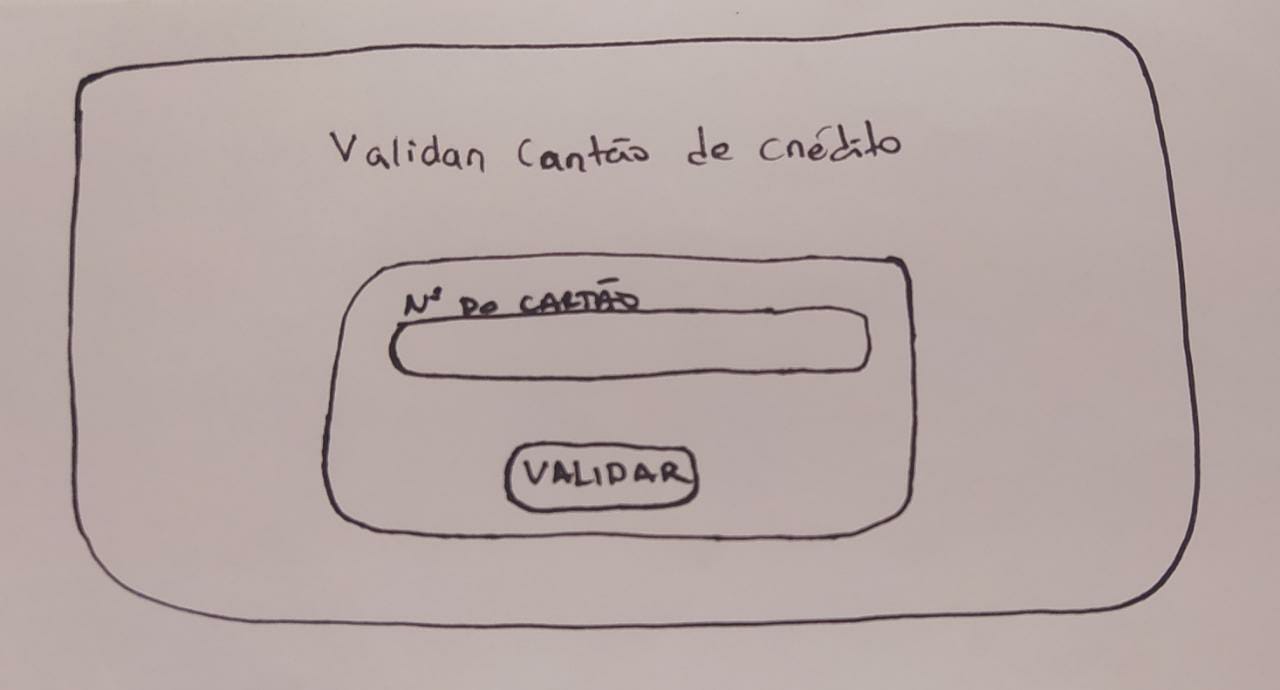 Validar Cartão de crédito
Nº DO CARTÃO
VALIDAR